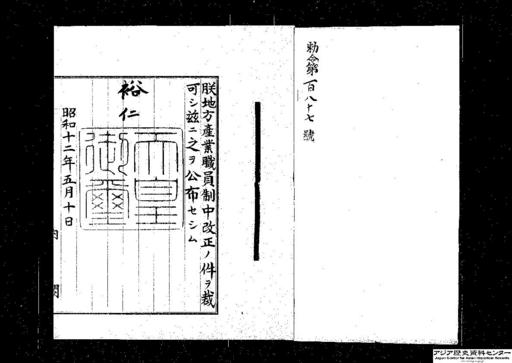 勅令第百八十七號
朕地方産業職員制中改正ノ件ヲ裁
可シ茲ニ之ヲ公布セシム
裕仁
天皇
御璽
昭和十二年五月十日
内閣
アジア歴史資料センター
Japan Center for Asian Historical Records